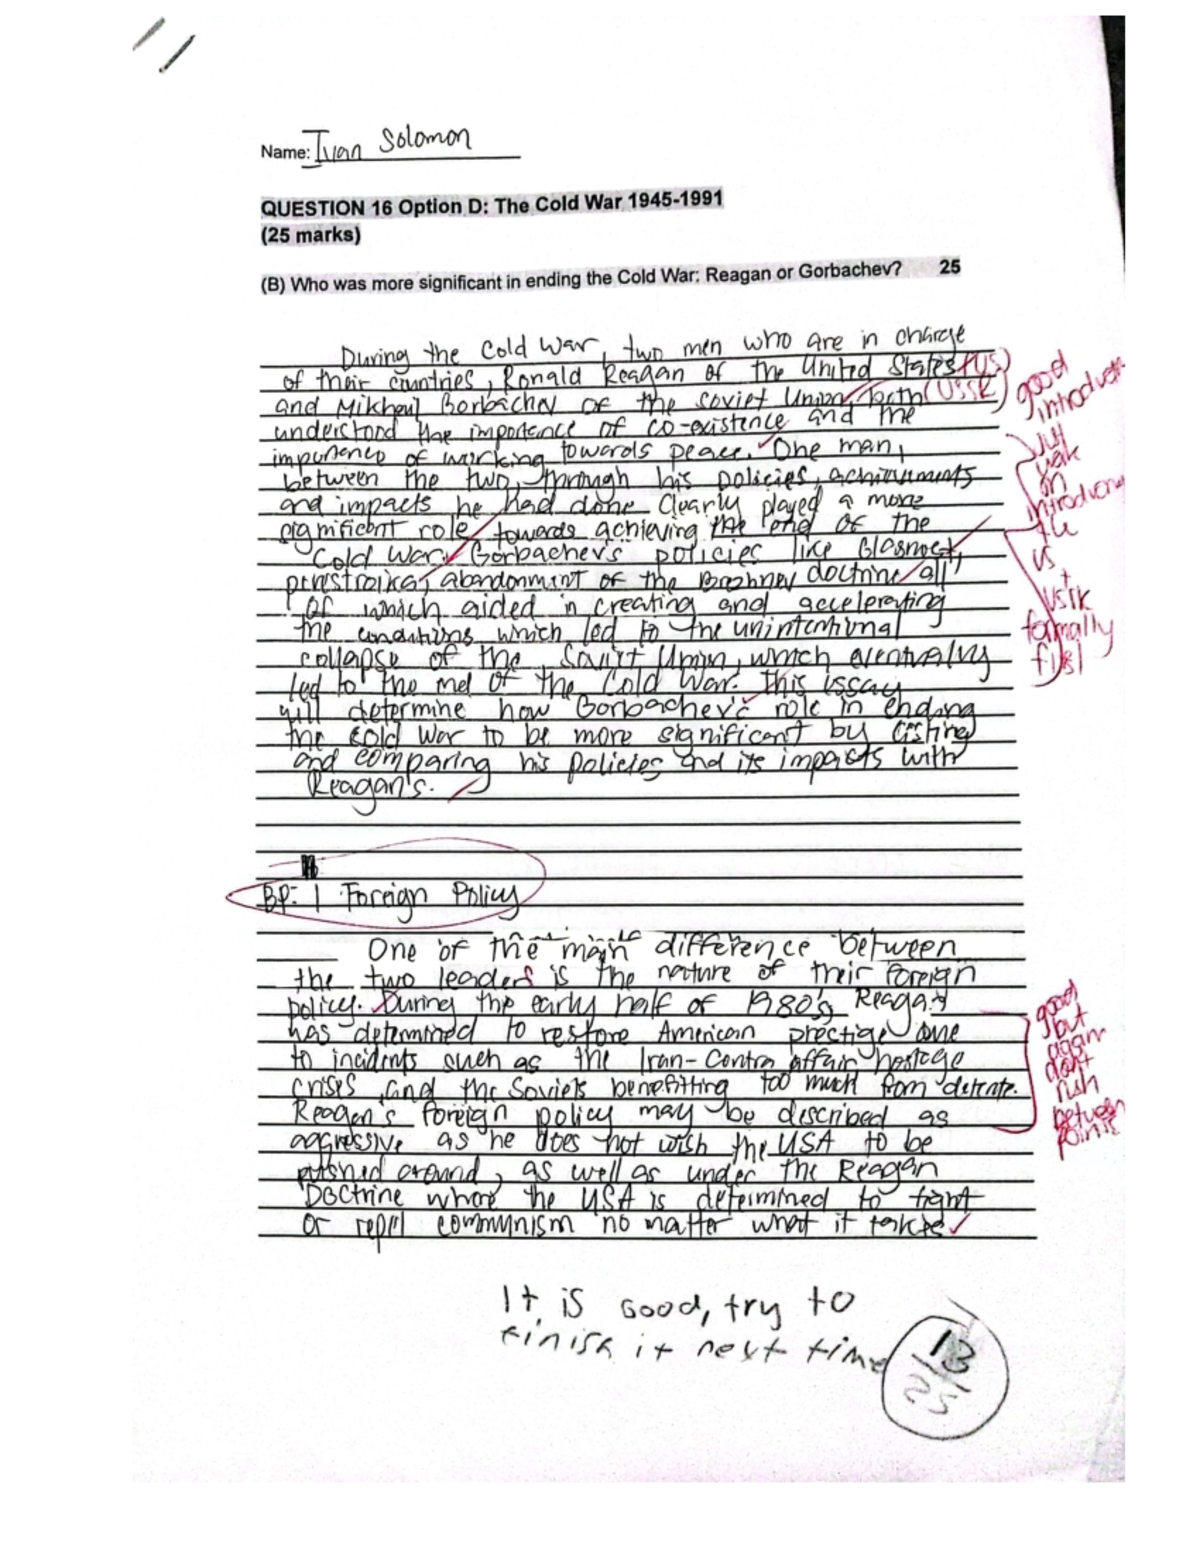 Name: Ivan Solomon
QUESTION 16 Option D: The Cold War 1945-1991
(25 marks)
(B) Who was more significant in ending the Cold War: Reagan or Gorbachev? 25
During the Cold War, two men who are in charge
of their countries, Ronald Reagan of the United States (US)
and Mikhail Gorbachev of the Soviet Union, both (USSR)
understood the importance of co-existence and the
importance of working towards peace. One man,
between the two, through his policies, achievements
and impacts he had done clearly played a more
significant role towards achieving the end of the
Cold War. Gorbachev's policies like Glasnost,
perestroika, abandonment of the Brezhnev doctrine all
of which aided in creating and accelerating
the conditions which led to the unintentional
collapse of the Soviet Union, which eventually
led to the end of the Cold War. This essay
will determine how Gorbachev's role in ending
the Cold War to be more significant by listing
and comparing his policies and its impacts with
Reagan's.
good
introduction
just
wak
on
introducing
the
US
+
USSR
formally
first
BP: 1 Foreign Policy
One of the main difference between
the two leaders is the nature of their foreign
policy. During the early half of 1980's, Reagan
was determined to restore American prestige due
to incidents such as the Iran-Contra affair hostage
crises, and the Soviets benefitting too much from detente.
Reagan's foreign policy may be described as
aggressive as he does not wish the USA to be
pushed around, as well as under the Reagan
Doctrine where the USA is determined to fight
or repel communism no matter what it takes
good
but
again
don't
rush
between
points
It is good, try to
finish it next time
13
25